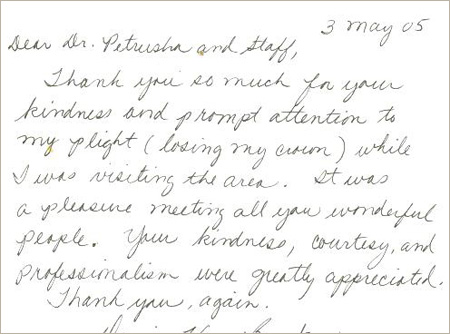 3 May 05
Dear Dr. Petrusha and Staff,
Thank you so much for your
kindness and prompt attention to
my plight (losing my crown) while
I was visiting the area. It was
a pleasure meeting all you wonderful
people. Your kindness, courtesy, and
professionalism were greatly appreciated.
Thank you, again.